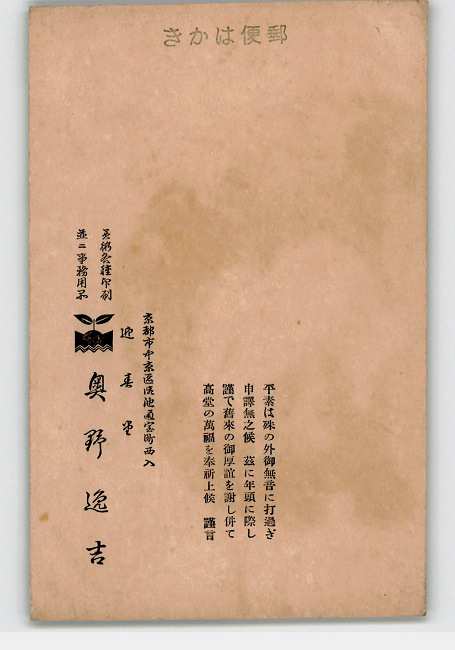 郵便はかき
平素は殊の外御無音に打過ぎ
申譯無之候　茲に年頭に際し
謹で舊來の御厚誼を謝し併て
高堂の萬福を奉祈上候　謹言
京都市中京區御池通室町西入
迎春堂
美術各種印刷
並ニ事務用品
奥野逸吉